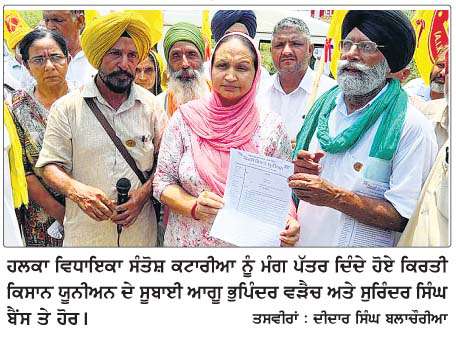 ਹਲਕਾ ਵਿਧਾਇਕਾ ਸੰਤੋਸ਼ ਕਟਾਰੀਆ ਨੂੰ ਮੰਗ ਪੱਤਰ ਦਿੰਦੇ ਹੋਏ ਕਿਰਤੀ
ਕਿਸਾਨ ਯੂਨੀਅਨ ਦੇ ਸੂਬਾਈ ਆਗੂ ਭੁਪਿੰਦਰ ਵੜੈਚ ਅਤੇ ਸੁਰਿੰਦਰ ਸਿੰਘ
ਬੈਂਸ ਤੇ ਹੋਰ। ਤਸਵੀਰਾਂ : ਦੀਦਾਰ ਸਿੰਘ ਬਲਾਚੌਰੀਆ